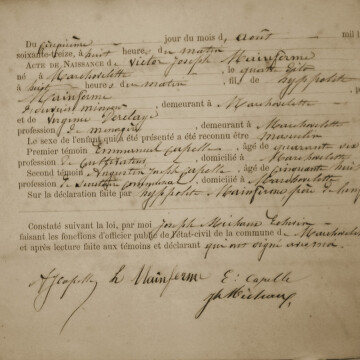 Du cinquième jour du mois d' août mil h
soixante-seize, à huit heures du matin
ACTE DE NAISSANCE de Victor Joseph Mainferme
né à Marchovelette, le quatre
à huit heures du matin, fils de hyppolite
Mainferme
profession mineur, demeurant à Marchovelette
et de
profession de ménagère, demeurant à Marchovelette
Le sexe de l'enfant qui a été présenté a été reconnu être masculin
Premier témoin Emmanuel Capelle, âgé de quarante six
profession de cultivateur, domicilié à Marchovelette
Second témoin Augustin Joseph Capelle, âgé de cinquante huit
profession de Secrétaire communal, domicilié à Marchovelette
Sur la déclaration faite par hyppolite Mainferme père de l'enf
Constaté suivant la loi, par moi Joseph Michaux
faisant les fonctions d'officier public de l'état-civil de la commune de Marchovelet
et après lecture faite aux témoins et déclarant qui ont signé avec moi.
AJ Capelle h Mainferme E: Capelle
Jh Michaux